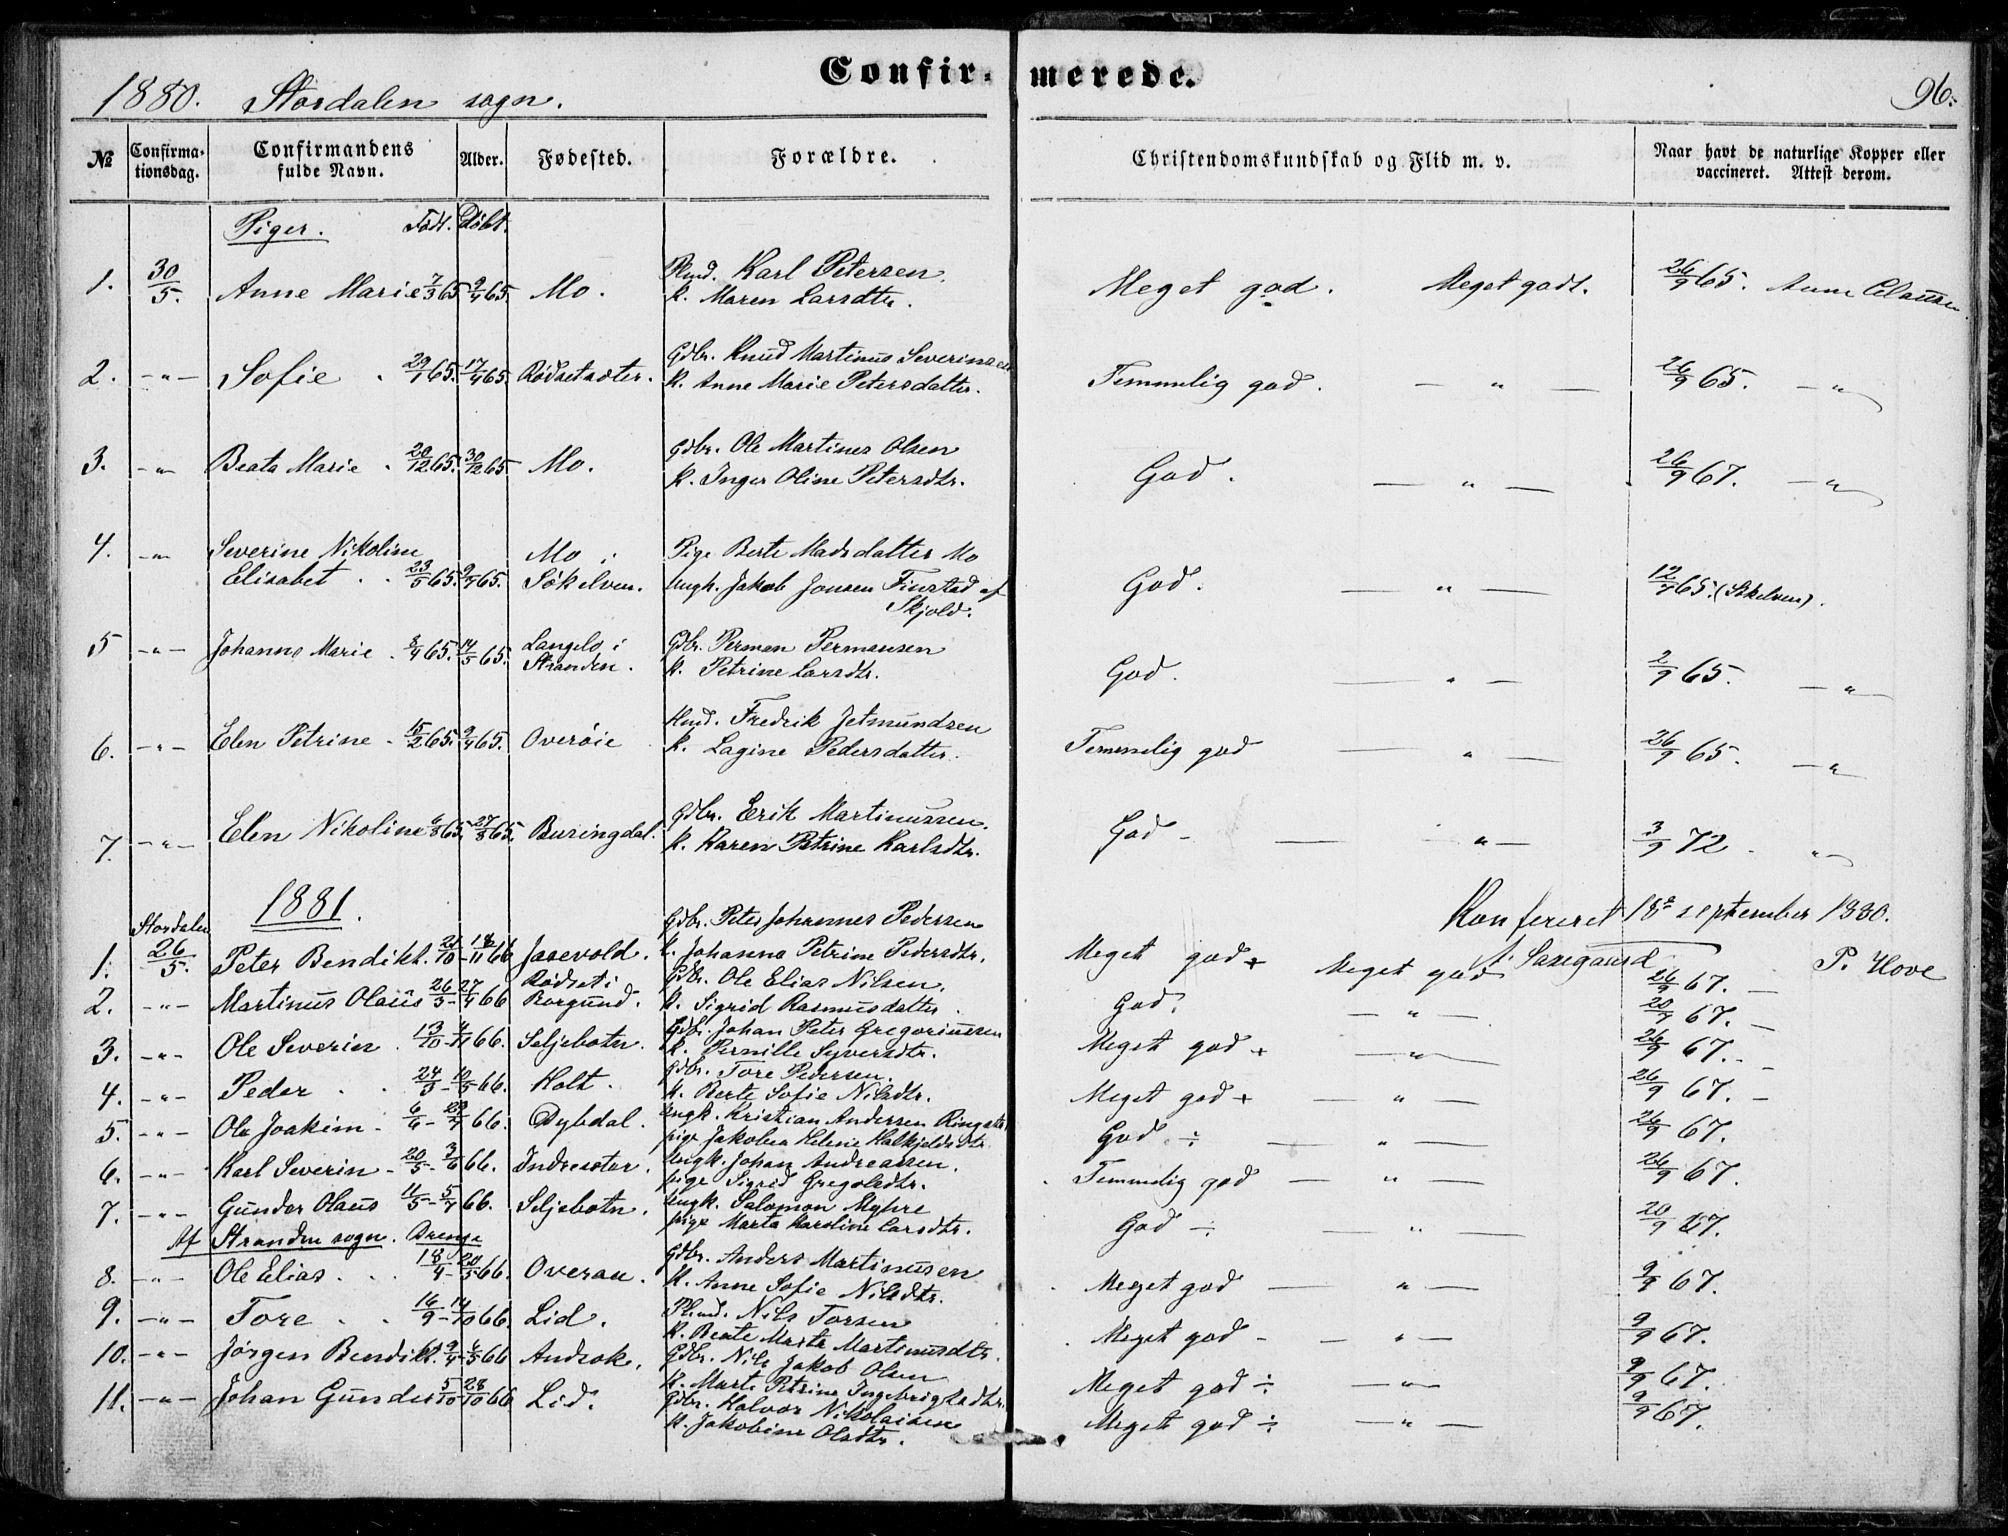 Confirmerede.
1880. Stordalen sogn.
96.
No
Confirmationsdag.
Confirmandens fulde Navn.
Alder.
Fødested.
Forældre.
Christendomskundskab og Flid m. v.
Naar havt de naturlige Kopper eller vaccineret. Attest derom.
Piger. Født. Döbt.
1. 30/5. Anne Marie 7/3 65 9/4 65. Mo. Plmd. Karl Petersen, k. Maren Larsdtr. Meget god. Meget godt. 26/9 65. Anne Clausen
2. -"- Sofie 29/1 65. 17/4 65. Rödsetsæter. Gdbr. Knud Martinus Severinsen k. Anne Marie Petersdatter. Temmelig god. — " — 26/9 65. — "
3. -"- Beata Marie 20/12 65. 30/12 65. Mo. Gdbr. Ole Martines Olsen k. Inger Oline Petersdtr. God. — " — 26/9 67. — "
4. -"- Severine Nikoline Elisabet 23/5 65. 9/7 65. Mo i Sökelven. Pige Berte Madsdatter Mo Ungk. Jakob Jonsen Finstad af Skjold. God. — " — 12/9 65. (Sökelven).
5 -"- Johanne Marie 8/4 65. 14/5 65. Langelo i Stranden. Gdbr. Perman Permansen k. Petrine Larsdtr. God. — " — 2/9 65. — "
6. -"- Elen Petrine 15/2 65. 9/4 65. Overöie Hmd. Fredrik Jetmundsen k. Lagine Pedersdatter. Temmelig god — " — 26/9 65. — "
7. -"- Elen Nikoline 6/8 65. 27/8 65. Busingdal. Gdbr. Erik Martinussen. k. Karen Petrine Karlsdtr. God — " — 3/9 72. "
Konfereret 18de september 1880.
Saxegaard
1881.
Stordalen
1. 26/5. Peter Bendikt. 21/10 - 18/11 66 Jasevold. Gdbr. Peter Johannes Pedersen k. Johanna Petrine Pedersdtr. Meget god + Meget god 26/9 67. — P. Hove
2. -"- Martinus Olaus 26/3 - 27/4 66 Rödset i Borgund. Gdbr. Ole Elias Nilsen. k. Sigrid Rasmusdatter. God. — " — 20/9 67. —
3. -"- Ole Severin 13/10 - 4/11 66. Seljebotn. Gdbr. Johan Peter Gregoriussen k. Pernille Syversdtr. Meget god + — " — 26/9 67. -
4. -"- Peder 24/3 - 10/5 66. Holt. Gdbr. Tore Pedersen. k. Berte Sofie Nilsdtr. Meget god + — " — 26/9 67. —
5. -"- Ole Joakim 6/6 - 29/7 66. Dybdal. Ungk. Kristian Andersen Ringset pige Jakobea Helene Halkjeldsdtr. God ÷ — " — 26/9 67.
6. -"- Karl Severin - 20/5 - 3/6 66. Indresæter. Ungk. Johan Andreassen. pige Sigrid Gregoledtr. Temmelig god — " — 26/9 67.
7. -"- Gunder Olaus 11/5 - 5/7 66. Seljebotn. Ungk. Salomon Myhre pige Marta Karoline Larsdtr. God ÷ " 20/9 67.
Af Stranden sogn. Drenge
8. -"- Ole Elias. 18/4 - 20/5 66. Overaa. Gdbr. Anders Martinusen k. Anne Sofie Nilsdtr. Meget god — " — 9/9 67.
9. -"- Tore 16/9 - 14/10 66. Lid. Plmd. Nils Torsen k. Beate Marta Martinusdtr. Meget god - — " — 9/9 67.
10. -"- Jörgen Bendikt. 9/4 - 6/5 66 Andsok. Gdbr. Nils Jakob Olsen k. Marte Petrine Ingebrigtsdtr. Meget god ÷ — " — 9/9 67.
11. -"- Johan Gunder 5/10 - 28/10 66 Lid. Gdbr. Halvor Nikolaisen k. Jakobine Olsdtr. Meget god ÷ — " — 9/9 67.